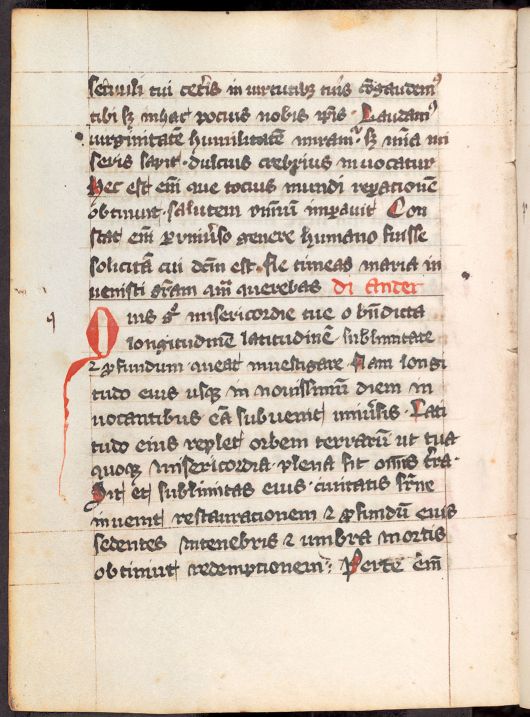 seruuli tui ceteris in uirtutibus tuis congaudemus
tibi sed in hac pocius nobis ipsis Laudamus
uirginitatem humilitatem miramur sed misericordia mi
seris sapit dulcius crebrius inuocatur
Hec est enim que tocius mundi reparationem
obtinuit salutem omnium impetrauit Con
stat enim pro uniuerso genere humano fuisse
solicitam cui dictum est Ne timeas maria in
uenisti gratiam quam querebas di anter
Quis ergo misericordie tue o benedicta
longitudinem latitudinem sublimitatem
et profundum queat inuestigare Nam longi
tudo eius usque in nouissimum diem in
uocantibus eam subuenit uniuersis Lati
tudo eius replet orbem terrarum ut tua
quoque misericordia plena sit omnis terra
Sit et sublimitas eius ciuitatis superne
inuenit restaurationem et profundum eius
sedentes in tenebris et umbra mortis
obtinuit redemptionem Per te enim